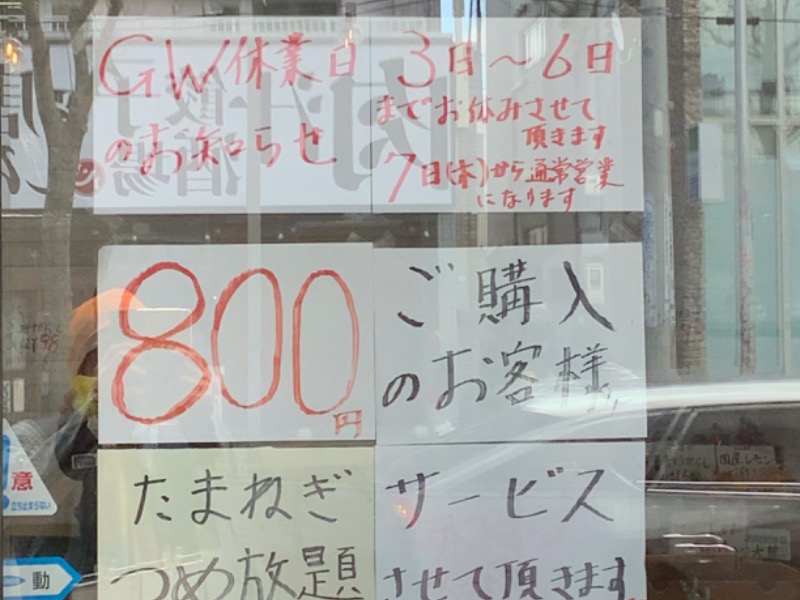 GW休業日
のお知らせ
3日〜6日
までお休みさせて
頂きます
7日(木)から通常営業
になります
800円
ご購入
のお客様
たまねぎ
つめ放題
サービス
させて頂きます。
意
立ち止まらない
動